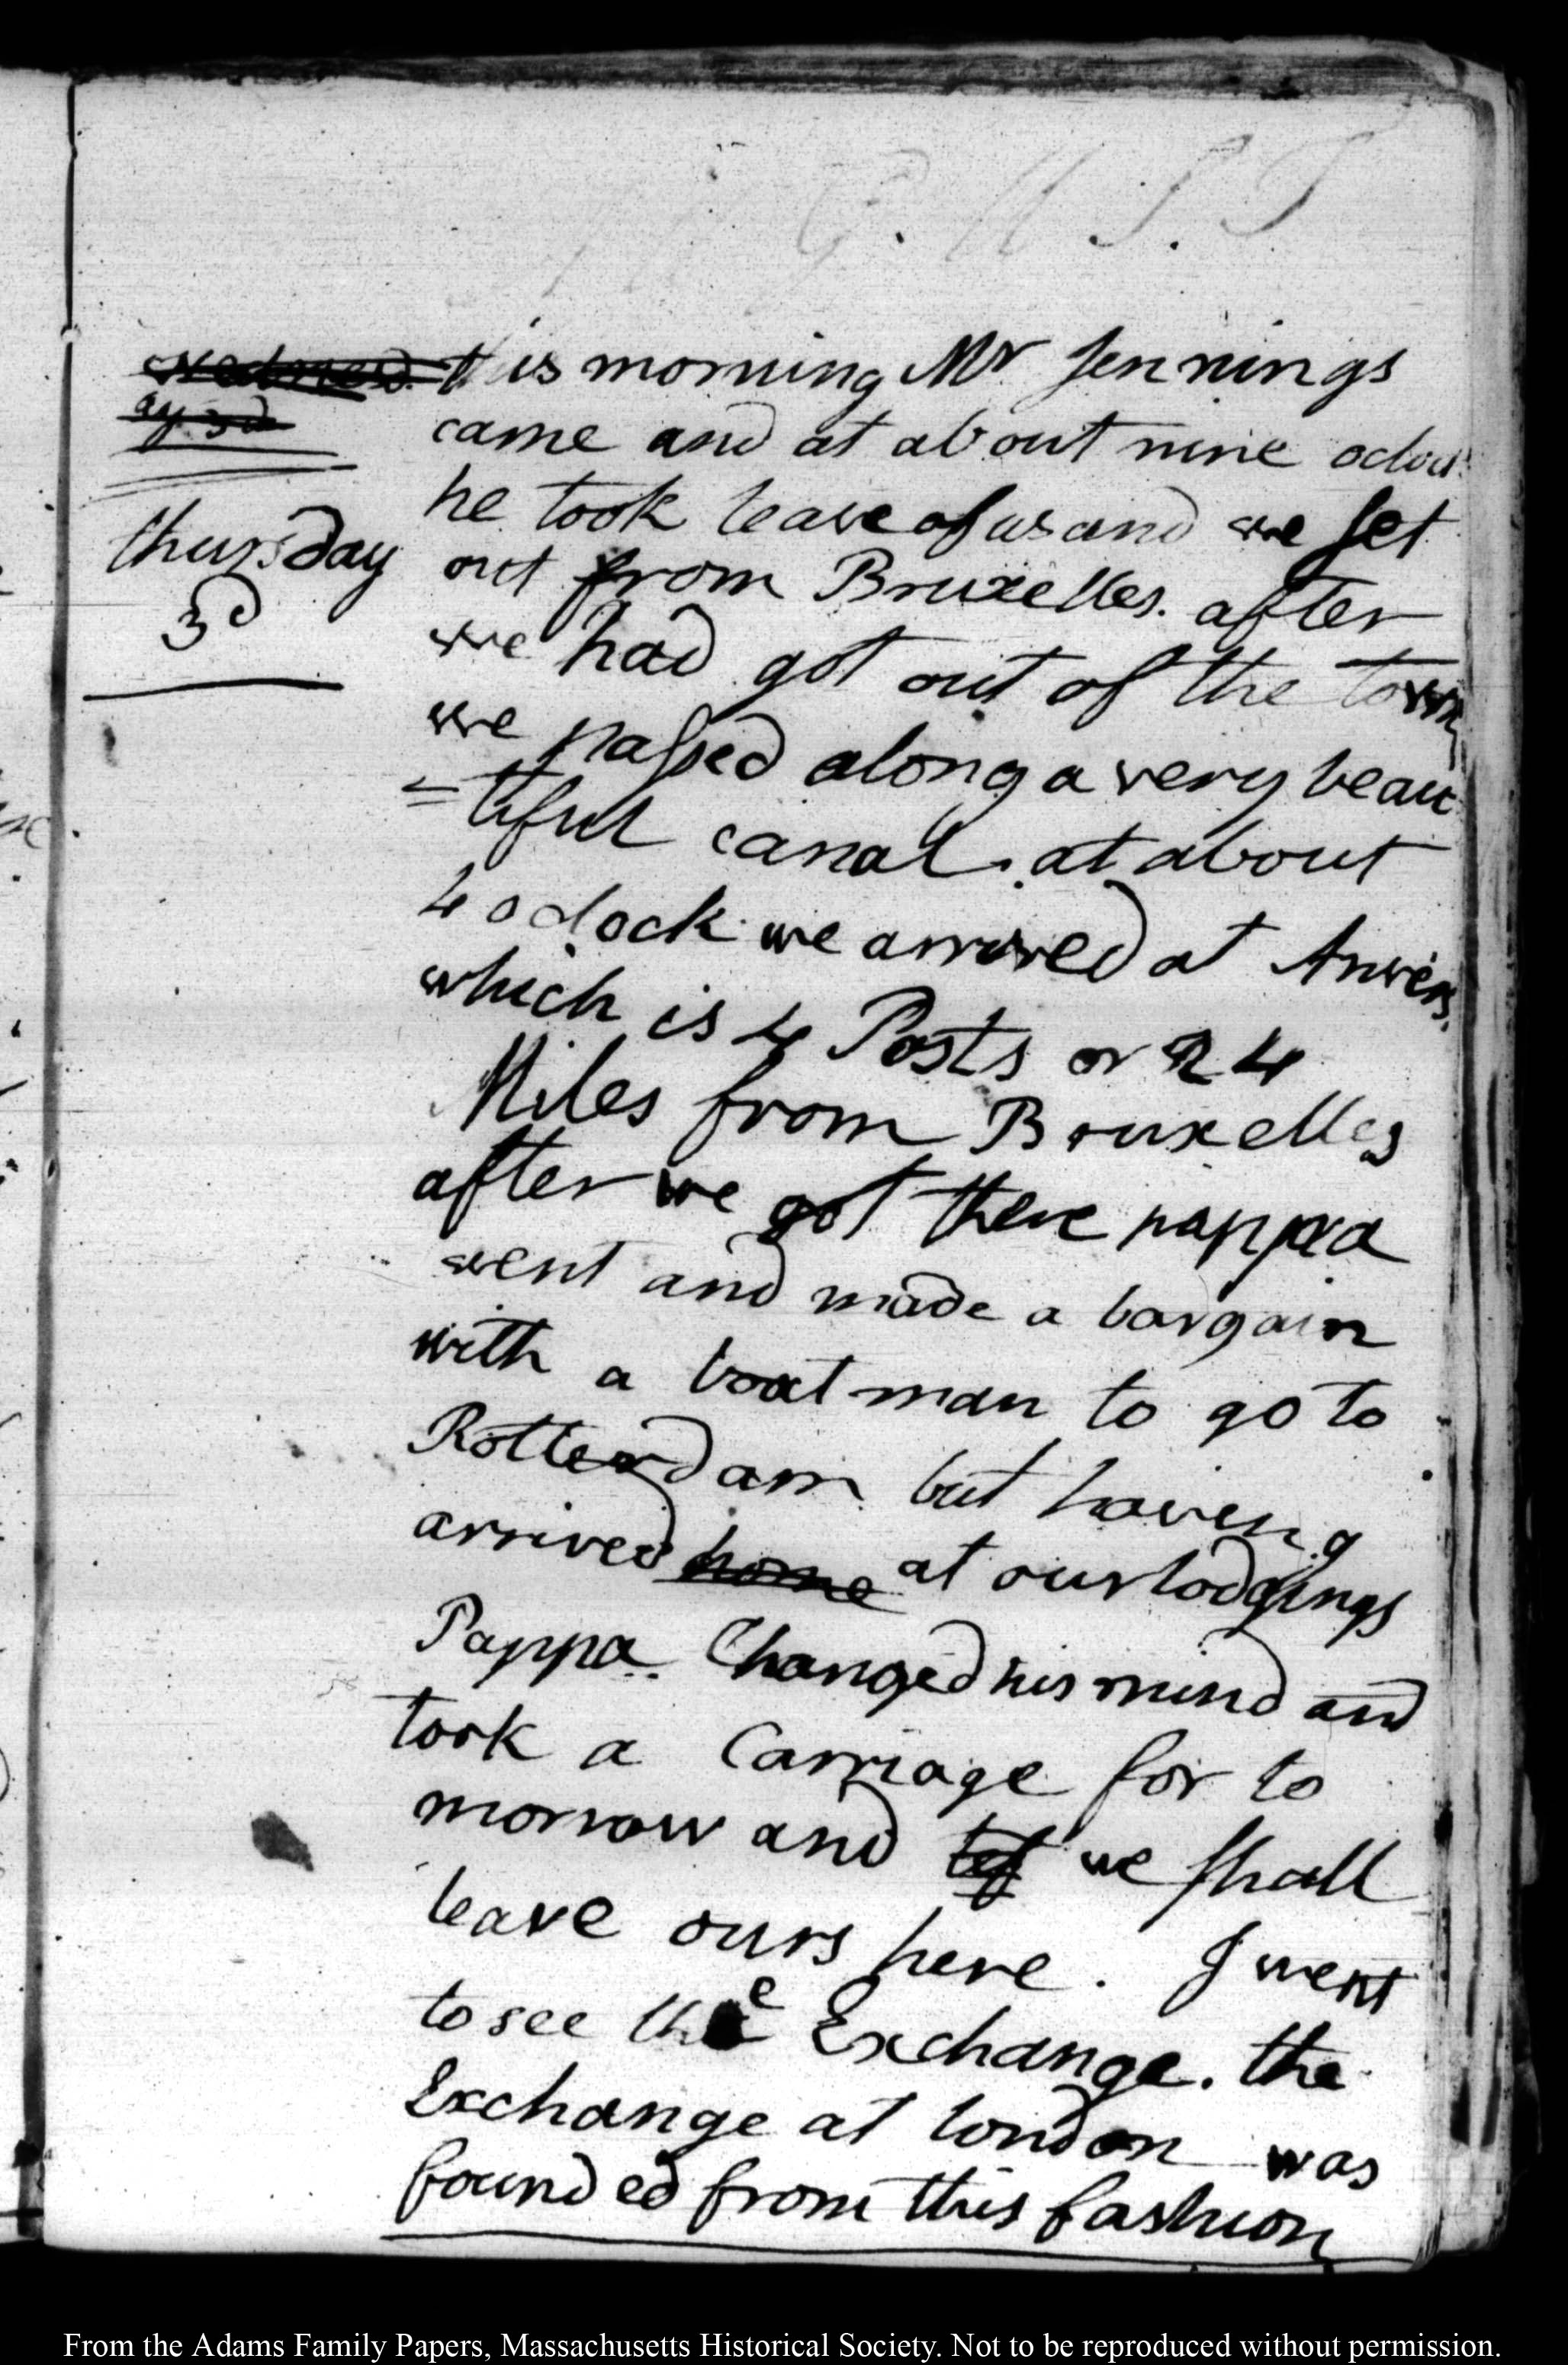 G. U. S. T
wednesd
ay 3d
thursday
3d
this morning Mr Jennings
came and at about nine oclock
he took leave of us and we set
out from Bruxelles. after
we had got out of the town
we passed along a very beau
=tiful canal. at about
4 oclock we arrived at Anvers.
which is 4 Posts or 24
Miles from Bruxelles
after we got there pappa
went and made a bargain
with a boat man to go to
Rotterdam but having
arrived home at our lodgings
Pappa. Changed his mind and
took a Carriage for to
morrow and we shall
leave ours here. I went
to see the Exchange. the
Exchange at london was
founded from this fashion
From the Adams Family Papers, Massachusetts Historical Society. Not to be reproduced without permission.